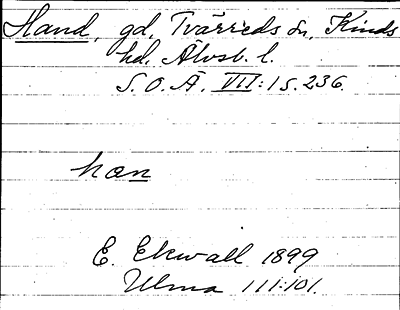 Hand, gd, Tvärreds sn, Kinds
hd, Älvsb. l.
S.O.Ä. VII:1 s. 236.
han
E. Ekwall 1899
Ulma 111:101.